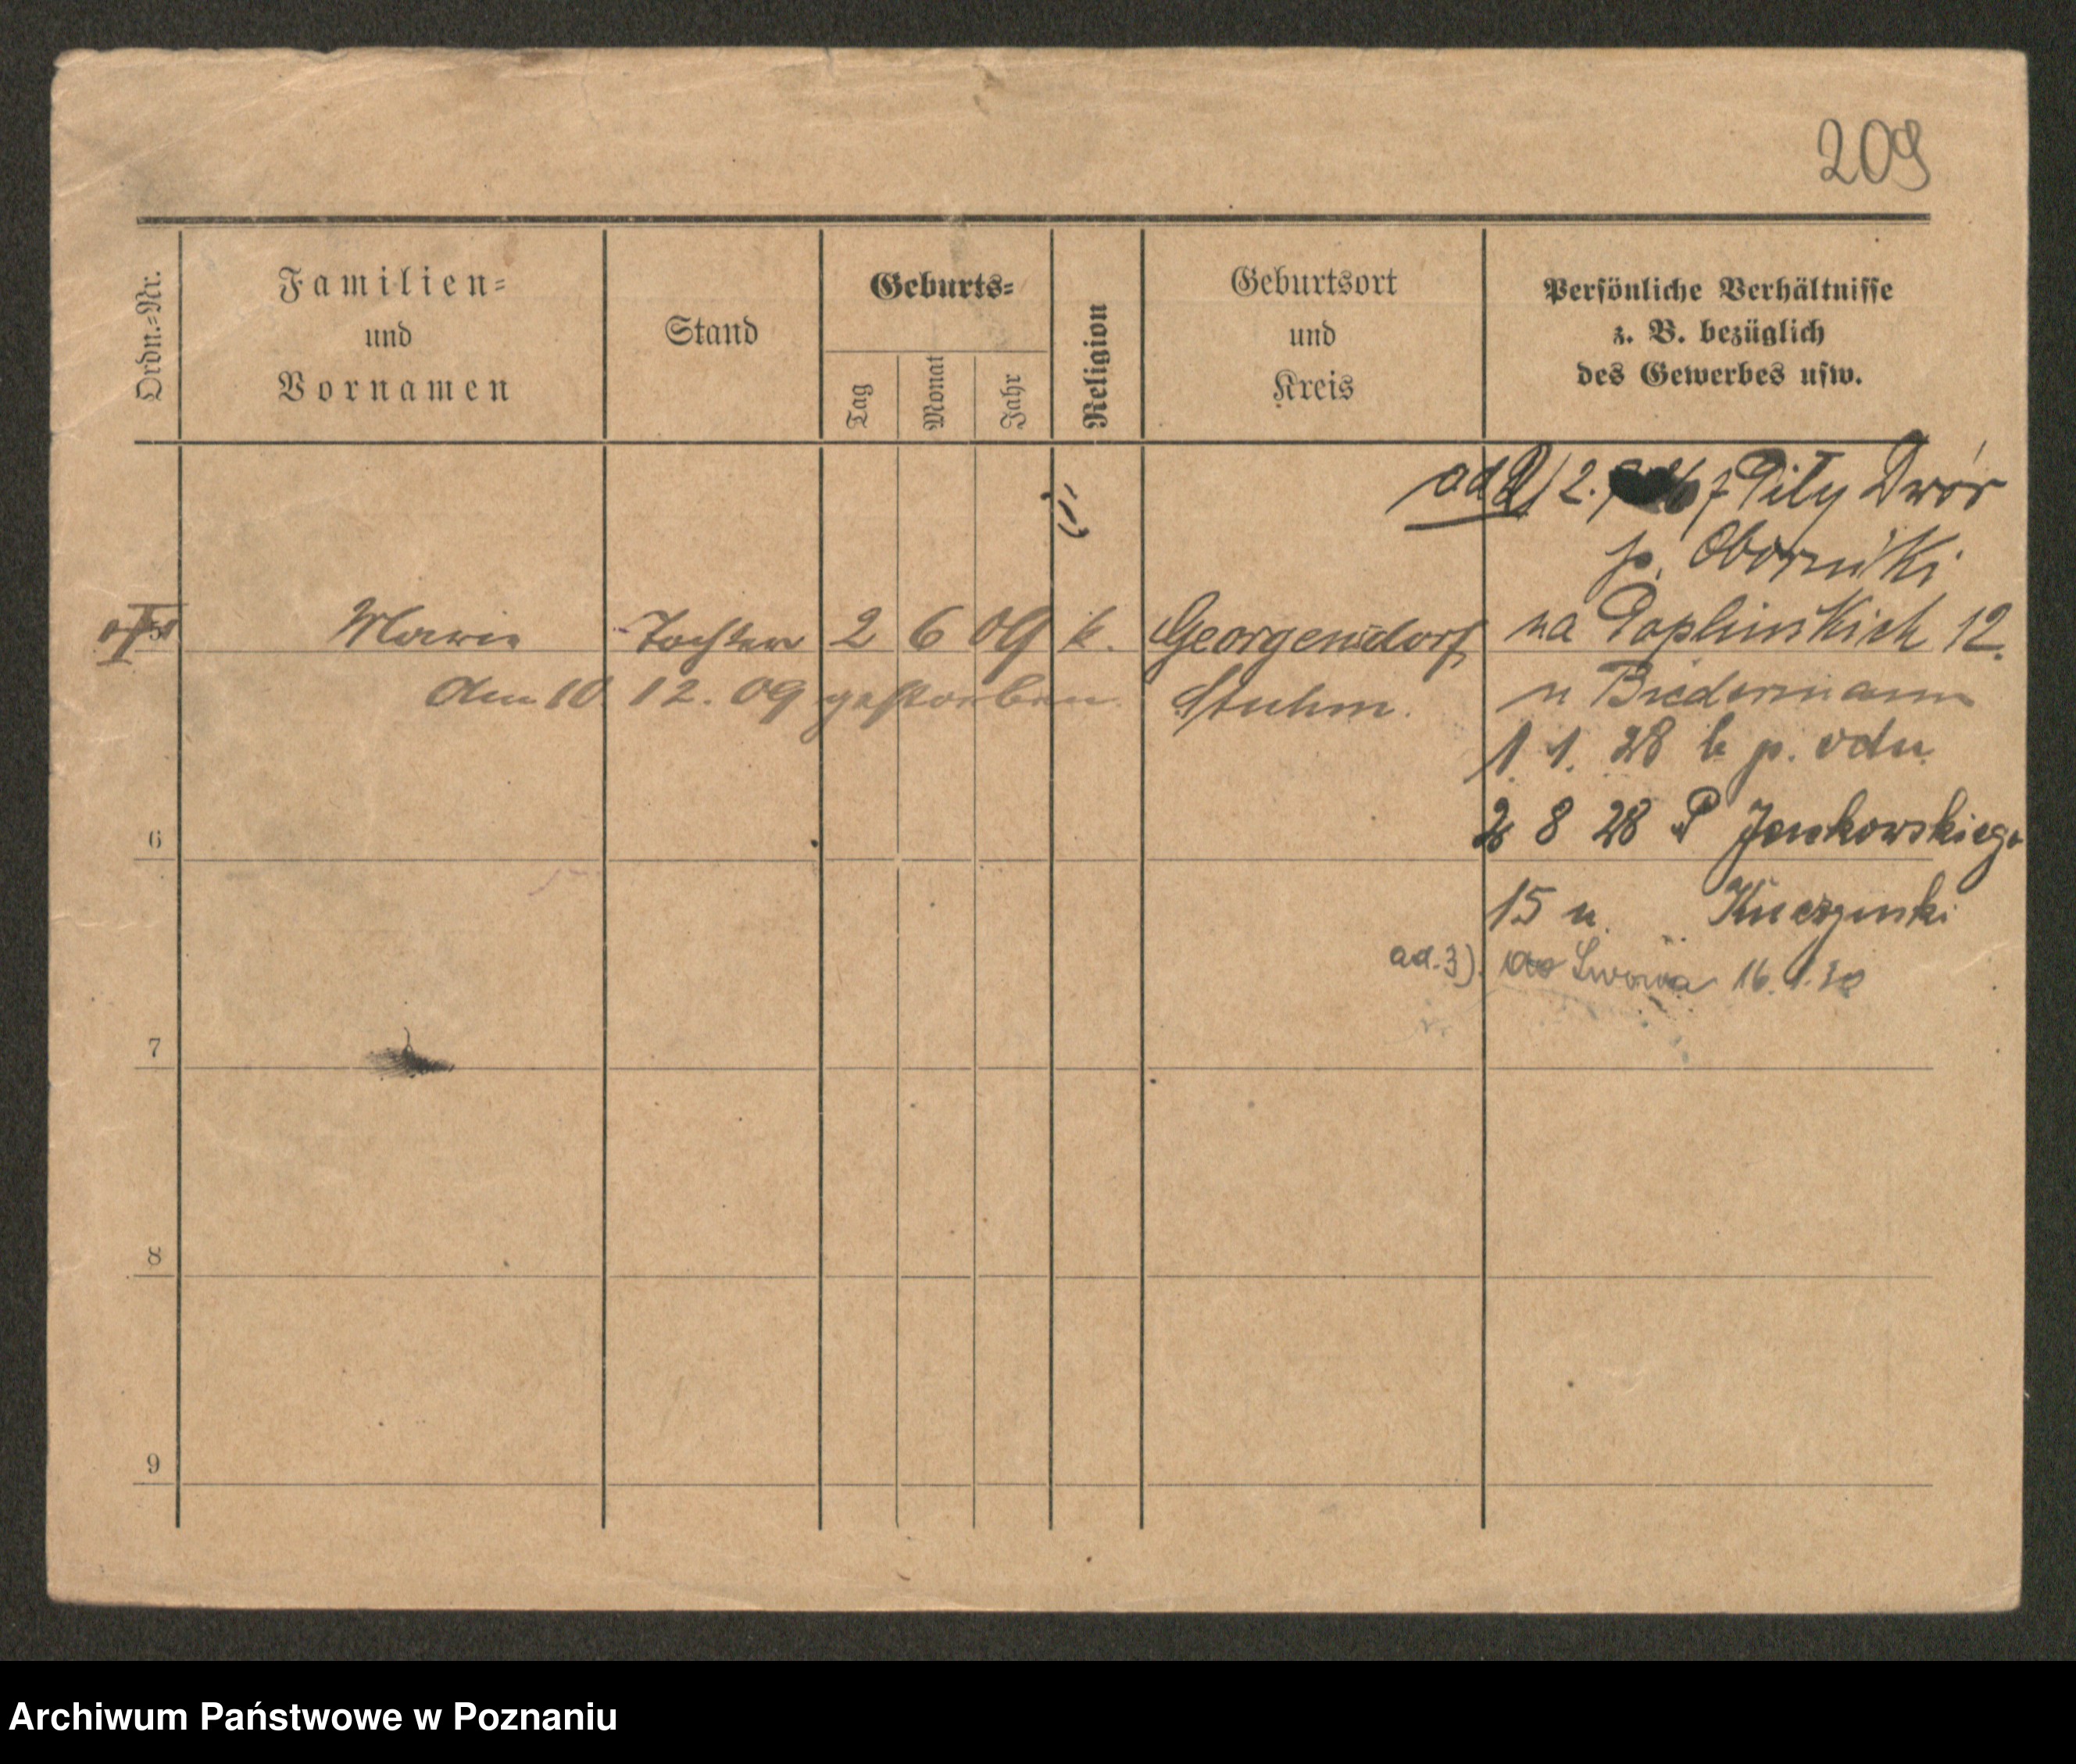 209
Ordn.=Nr.
Familien=
und
Vornamen
Stand
Geburts=
Tag
Monat
Jahr
Religion
Geburtsort
und
Kreis
Persönliche Verhältnisse
z. B. bezüglich
des Gewerbes usw.
ad 2) 2. z Piły Dwór
p. Oborniki
Maria Tochter 2 6 09 k. Georgensdorf na Poplinskich 12.
den 10. 12. 09 gestorben Stuhm. u Biedermann
1. 1. 28 b p. odn
6
2 8 28 P Jankowskiego
15 u. Kuczynski
ad. 3). do Lwowa 16. 1. 30
7
8
9
Archiwum Państwowe w Poznaniu